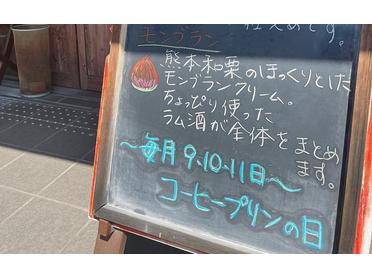 仕込めです。
モンブラン
熊本和栗のほっくりとした
モンブランクリーム。
ちょっぴり使った
ラム酒が全体をまとめ
ます。
〜毎月9・10・11日〜
コーヒープリンの日